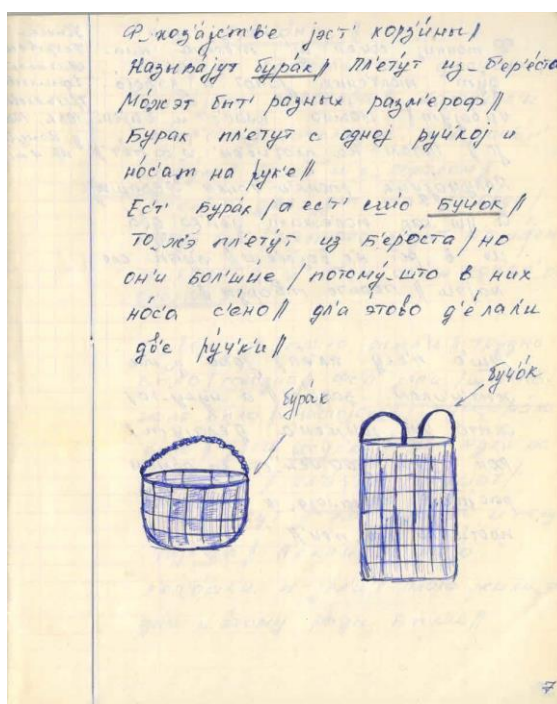 Ф‿хоз'а́јст'ве јэст' корз'и́ны/
Называ́јут бура́к// Пл'ету́т из‿б'ер'о́ста
Мо́жэт быт' ра́зных разм'ероф//
Бурак пл'ету́т с одној ру́чкој и
но́с'ат на рук'е//
Ес'т' бура́к/а ес'т' ешшо́ бучо́к/
То́жэ пл'ету́т из б'ер'о́ста/но
он'и бо́л'шие/потому́-што в них
но́с'а с'е́но// дл'а э́тово д'е́лали
дв'е ру́чк'и//
бура́к
бучо́к
7